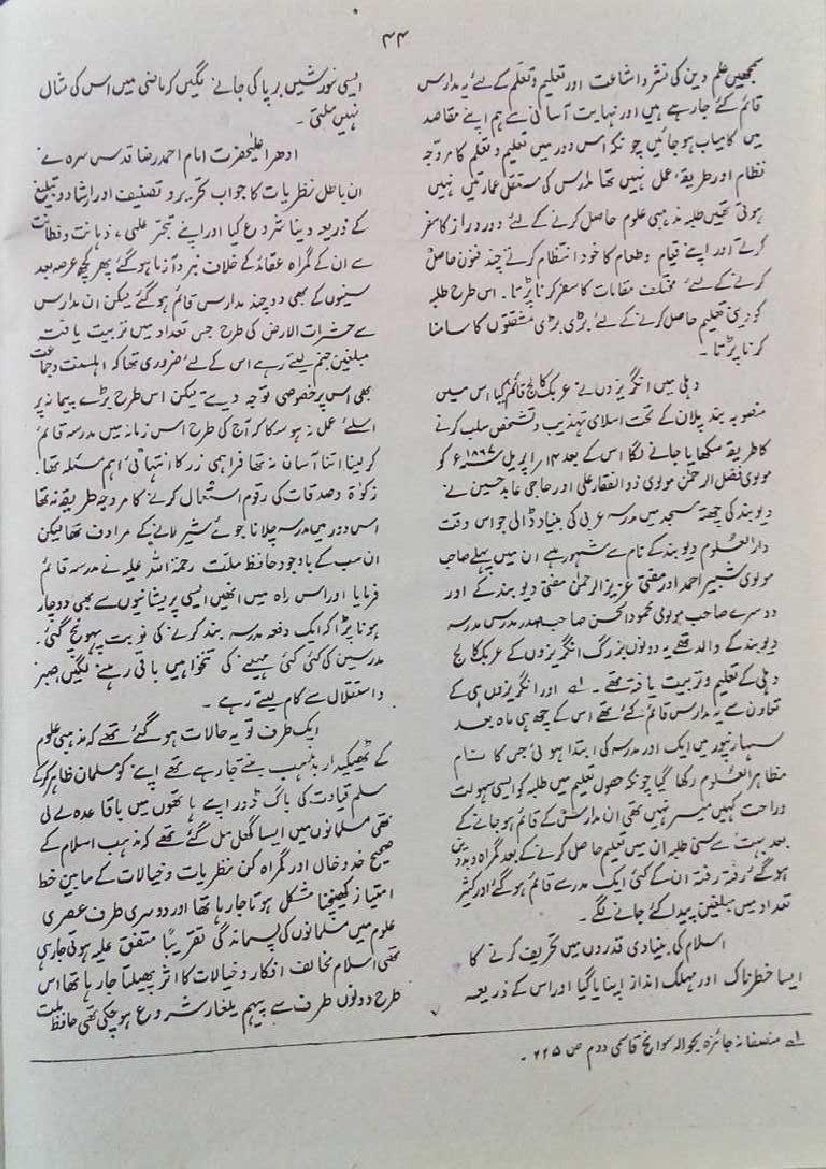 ۴۴
سمجھیں علم دین کی نشر و اشاعت اور تعلیم و تعلم کے لئے یہ مدارس
قائم کئے جارہے ہیں اور نہایت آسانی سے ہم اپنے مقاصد
میں کامیاب ہوجائیں چونکہ اس دور میں تعلیم و تعلم کا مروجہ
نظام اور طریقۂ عمل نہیں تھا مدارس کی مستقل عمارتیں نہیں
ہوتی تھیں طلبہ مذہبی علوم حاصل کرنے کے لئے دور دراز کا سفر
کرتے اور اپنے قیام و طعام کا خود انتظام کرتے چند فنون حاصل
کرنے کے لئے مختلف مقامات کا سفر کرنا پڑتا۔ اس طرح طلبہ
کو دینی تعلیم حاصل کرنے کے لئے بڑی بڑی مشقتوں کا سامنا
کرنا پڑتا۔
دہلی میں انگریزوں نے عربک کالج قائم کیا اس میں
منصوبہ بند پلان کے تحت اسلامی تہذیب و تشخص سلب کرنے
کا طریقہ سکھایا جانے لگا اس کے بعد ۱۴ اپریل ۱۸۶۷ء کو
مولوی فضل الرحمٰن مولوی ذوالفقار علی اور حاجی عابد حسین نے
دیوبند کی چھتہ مسجد میں مدرسہ عربی کی بنیاد ڈالی جو اس وقت
دارالعلوم دیوبند کے نام سے مشہور ہے ان میں پہلے صاحب
مولوی شبیر احمد اور مفتی عزیز الرحمٰن مفتی دیوبند کے اور
دوسرے صاحب مولوی محمود الحسن صاحب صدر مدرس مدرسہ
دیوبند کے والد تھے یہ دونوں بزرگ انگریزوں کے عربک کالج
دہلی کے تعلیم و تربیت یافتہ تھے۔ ۱ے اور انگریزوں ہی کے
تعاون سے یہ مدارس قائم کئے گئے تھے اس کے چھ ہی ماہ بعد
سہارنپور میں ایک اور مدرسہ کی ابتدا ہوئی جس کا نام
مظاہر العلوم رکھا گیا چونکہ حصول تعلیم میں طلبہ کو ایسی سہولت
و راحت کہیں میسر نہیں تھی ان مدارس کے قائم ہوجانے کے
بعد بہت سے سنی طلبہ ان میں تعلیم حاصل کرنے کے بعد گمراہ و بددین
ہوگئے رفتہ رفتہ ان کے کئی ایک مدرسے قائم ہوگئے اور کثیر
تعداد میں مبلغین پیدا کئے جانے لگے۔
اسلام کی بنیادی قدروں میں تحریف کرنے کا
ایسا خطرناک اور مہلک انداز اپنایا گیا اور اس کے ذریعہ
ایسی شورشیں برپا کی جانے لگیں کہ ماضی میں اس کی مثال
نہیں ملتی۔
ادھر اعلیٰحضرت امام احمد رضا قدس سرہ نے
ان باطل نظریات کا جواب تحریر و تصنیف اور ارشاد و تبلیغ
کے ذریعہ دینا شروع کیا اور اپنے تبحر علمی، ذہانت و فطانت
سے ان کے گمراہ عقائد کے خلاف نبرد آزما ہوگئے پھر کچھ عرصہ بعد
سنیوں کے بھی دو چند مدارس قائم ہوگئے لیکن ان مدارس
سے حشرات الارض کی طرح جس تعداد میں تربیت یافتہ
مبلغین جنم لیتے رہے اس کے لئے ضروری تھا کہ اہلسنت و جماعت
بھی اس پر خصوصی توجہ دیتے لیکن اس طرح بڑے پیمانہ پر
اسلئے عمل نہ ہوسکا کہ آج کی طرح اس زمانہ میں مدرسہ قائم
کرلینا اتنا آسان نہ تھا فراہمی زر کا انتہائی اہم مسئلہ تھا۔
زکوٰۃ و صدقات کی رقوم استعمال کرنے کا مروجہ طریقہ نہ تھا
اس دور میں مدرسہ چلانا جوئے شیر لانے کے مرادف تھا لیکن
ان سب کے باوجود حافظ ملت رحمۃ اللہ علیہ نے مدرسہ قائم
فرمایا اور اس راہ میں انھیں ایسی پریشانیوں سے بھی دوچار
ہونا پڑا کہ ایک دفعہ مدرسہ بند کرنے کی نوبت پہونچ گئی۔
مدرسین کی کئی کئی مہینے کی تنخواہیں باقی رہنے لگیں صبر
و استقلال سے کام لیتے رہے۔
ایک طرف تو یہ حالات ہوگئے تھے کہ مذہبی علوم
کے ٹھیکیدار بدمذہب بنتے جارہے تھے اپنے کو مسلمان ظاہر کرکے
مسلم قیادت کی باگ ڈور اپنے ہاتھوں میں باقاعدہ لے لی
تھی مسلمانوں میں ایسا گھل مل گئے تھے کہ مذہب اسلام کے
صحیح خد و خال اور گمراہ کن نظریات و خیالات کے مابین خط
امتیاز کھینچنا مشکل ہوتا جارہا تھا اور دوسری طرف عصری
علوم میں مسلمانوں کی پسماندگی تقریباً متفق علیہ ہوتی جارہی
تھی اسلام مخالف افکار و خیالات کا اثر پھیلتا جارہا تھا اس
طرح دونوں طرف سے پیہم یلغار شروع ہوچکی تھی حافظ ملت
۱ے منصفانہ جائزہ بحوالہ سوانح قاسمی دوم ص ۶۲۵۔